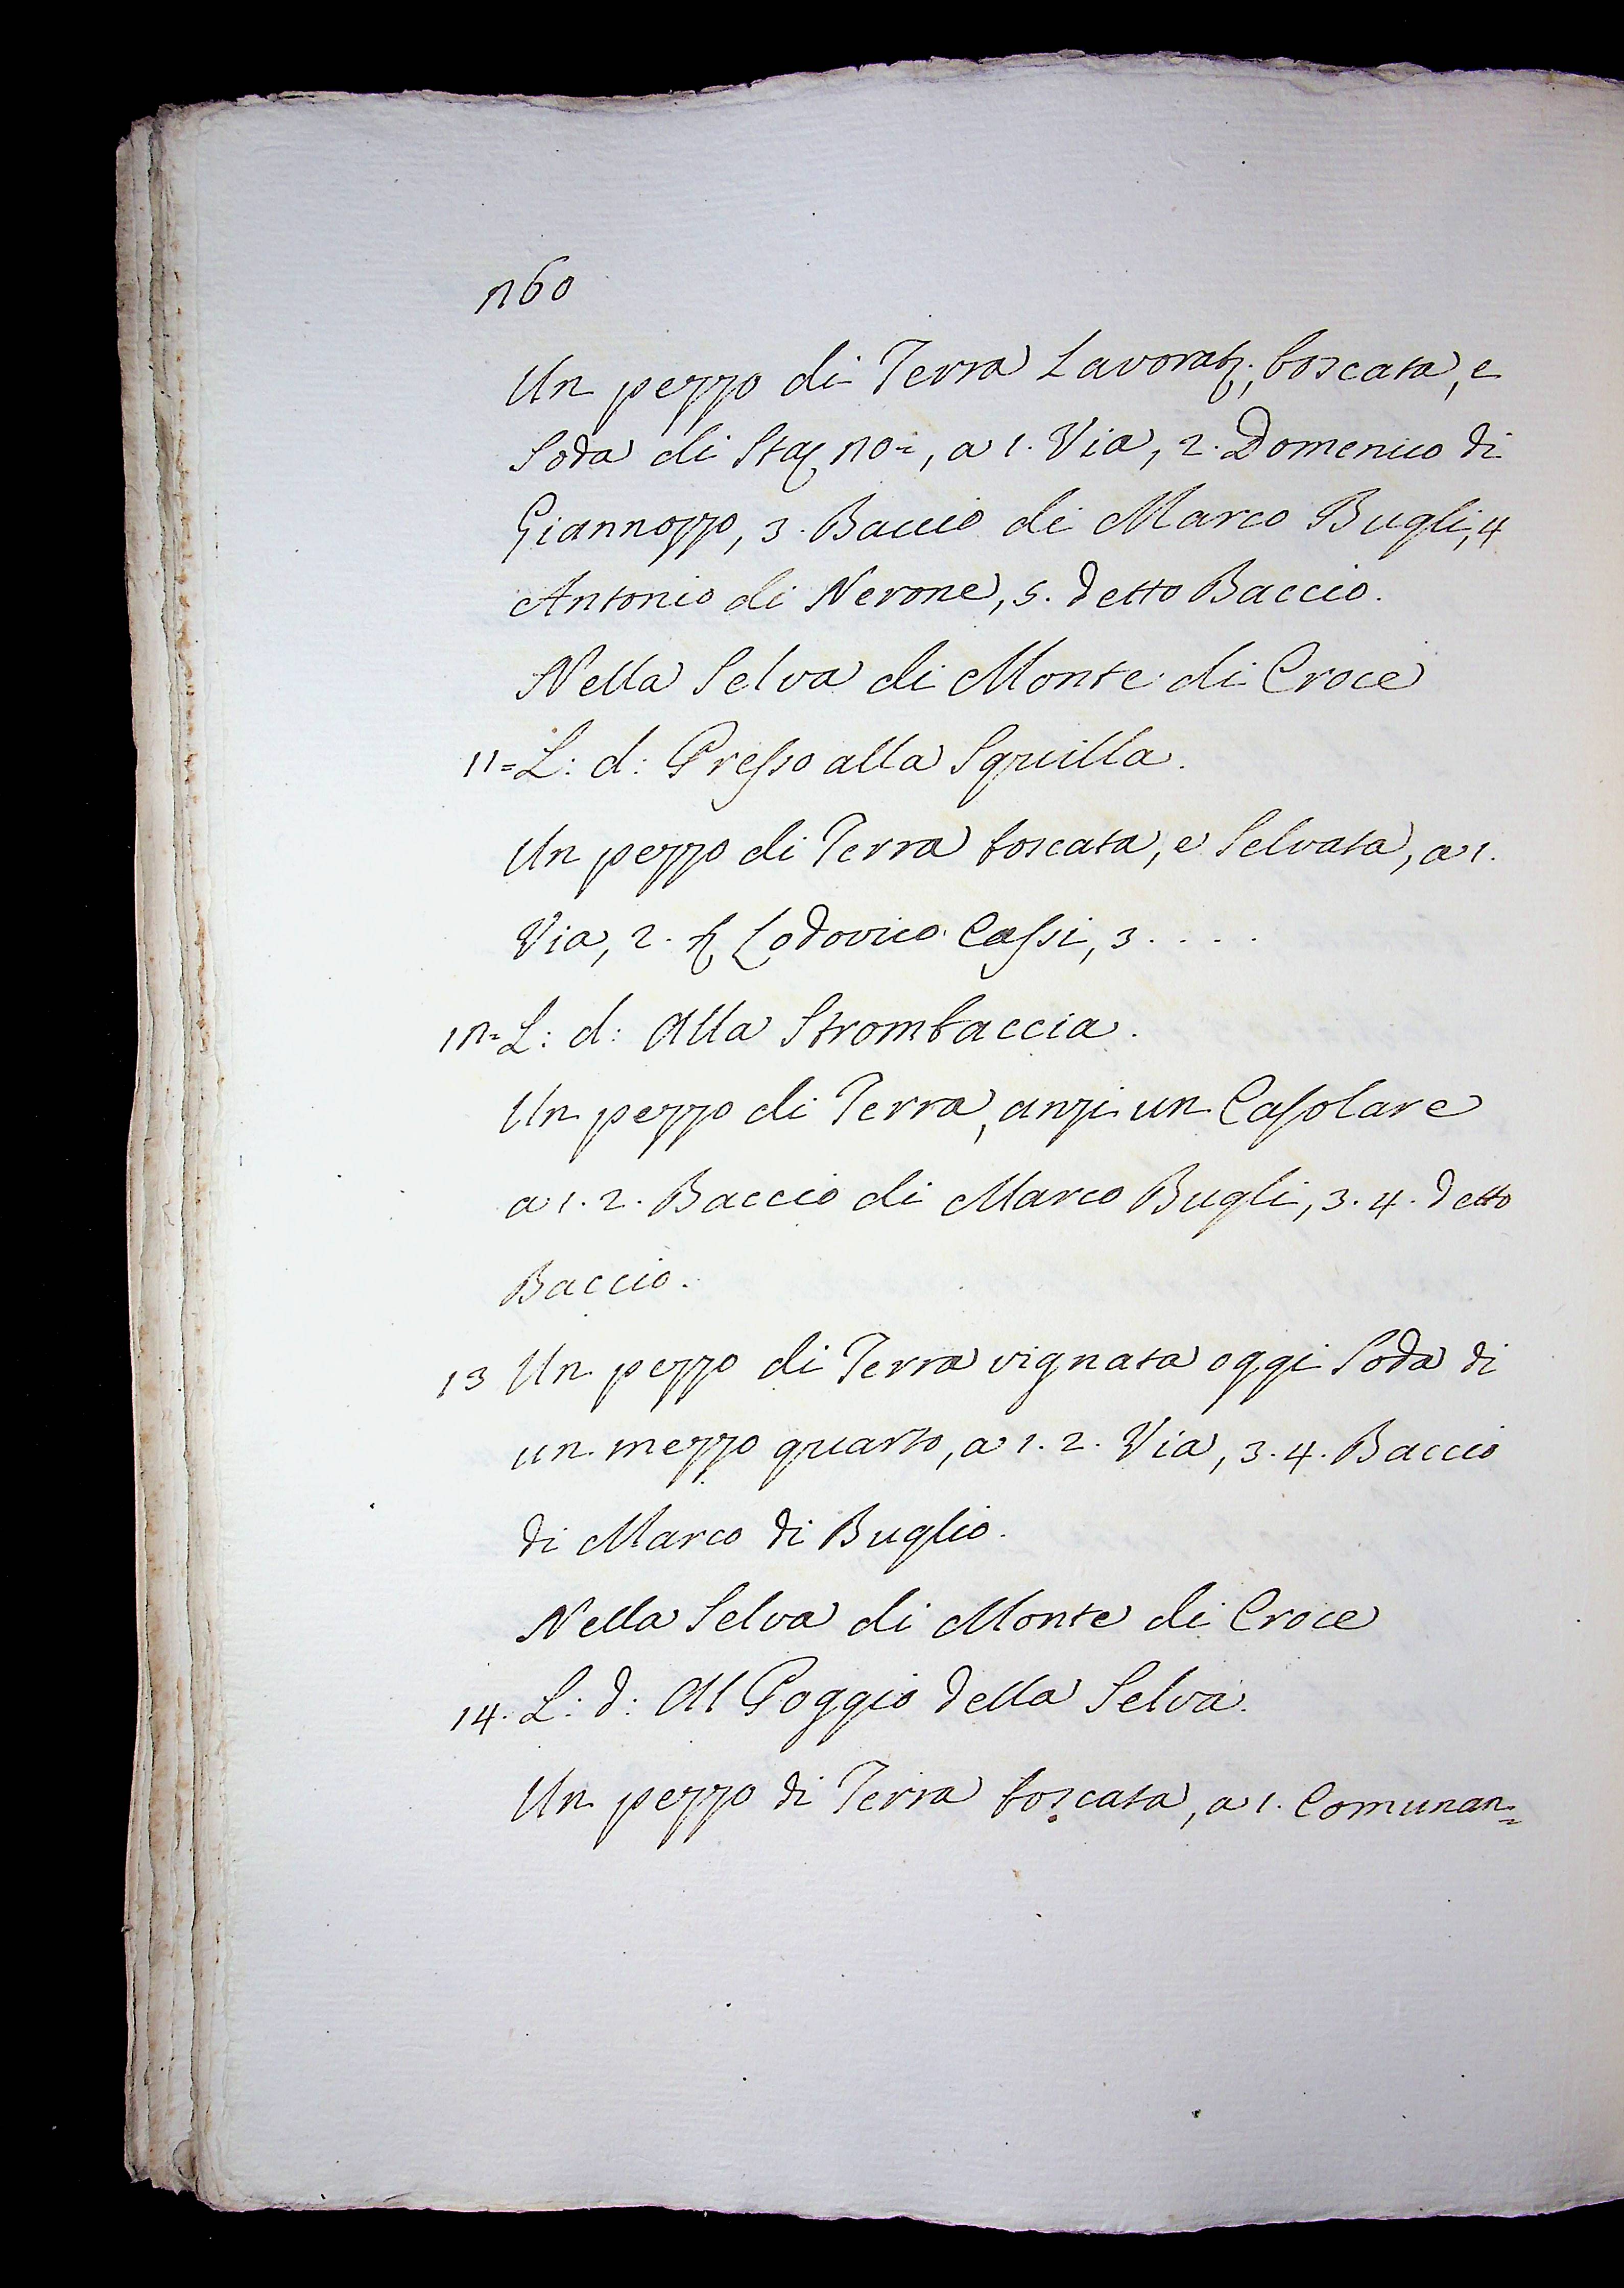 260
Un pezzo di Terra Lavorat:, boscata, e
Soda di Sta: 20=, a 1. Via, 2. Domenico di
Giannozzo, 3. Baccio di Marco Bugli, 4
Antonio di Nerone, 5. detto Baccio.
Nella Selva di Monte di Croce
11= L: d: Presso alla Squilla.
Un pezzo di Terra boscata, e Selvata, a 1.
Via, 2. Lodovico Cassi, 3 . . . .
12= L: d: Alla Strombaccia.
Un pezzo di Terra, anzi un Casolare
a 1. 2. Baccio di Marco Bugli, 3. 4. detto
Baccio.
13 Un pezzo di Terra vignata oggi Soda di
un mezzo quarto, a 1. 2. Via, 3. 4. Baccio
di Marco di Buglio.
Nella Selva di Monte di Croce
14. L: d: Al Poggio della Selva.
Un pezzo di Terra boscata, a 1. Comunan=